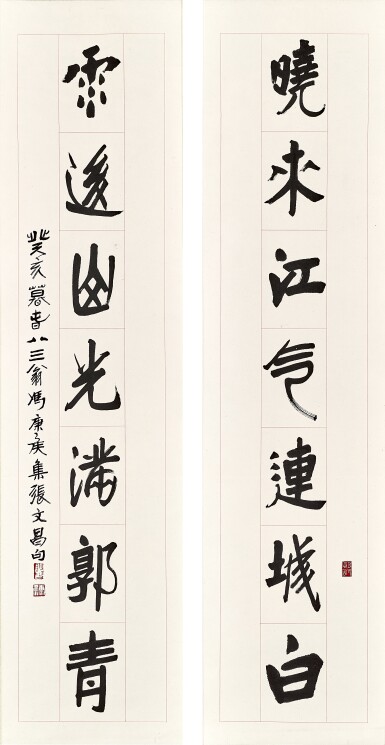 曉來江气連城白
雨後山光滿郭青
癸亥暮春八三翁馮康矦集張文昌句